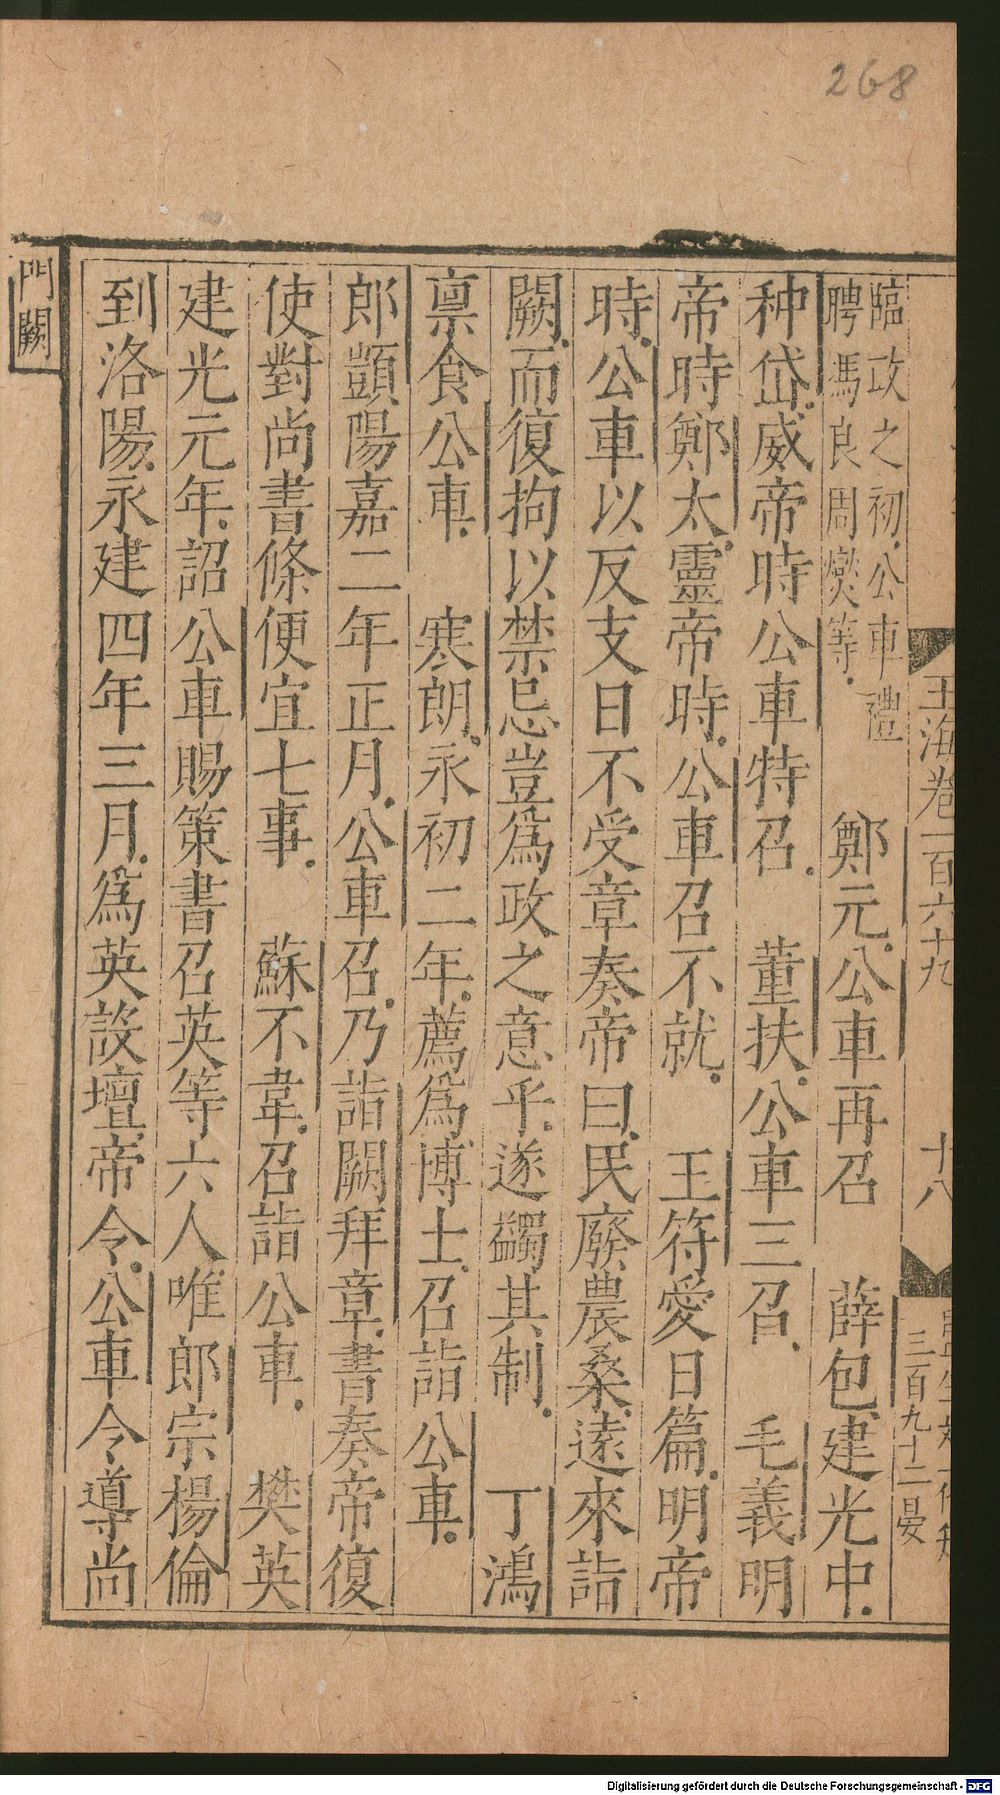 268
玉海卷一百六十九
十八
三百九十二晏
臨政之初公車禮
聘馮良周燮等 鄭元公車再召 薛包建光中
种岱威帝時公車特召 董扶公車三召 毛義明
帝時鄭太靈帝時公車召不就 王符愛日篇明帝
時公車以反支日不受章奏帝曰民廢農桑遠來詣
闕而復拘以禁忌豈爲政之意乎遂蠲其制 丁鴻
禀食公車 寒朗永初二年薦爲博士召詣公車
郎顗陽嘉二年正月公車召乃詣闕拜章書奏帝復
使對尚書條便宜七事 蘇不韋召詣公車 樊英
建光元年詔公車賜策書召英等六人唯郎宗楊倫
到洛陽永建四年三月爲英設壇帝令公車令導尚
門闕
Digitalisierung gefördert durch die Deutsche Forschungsgemeinschaft - DFG